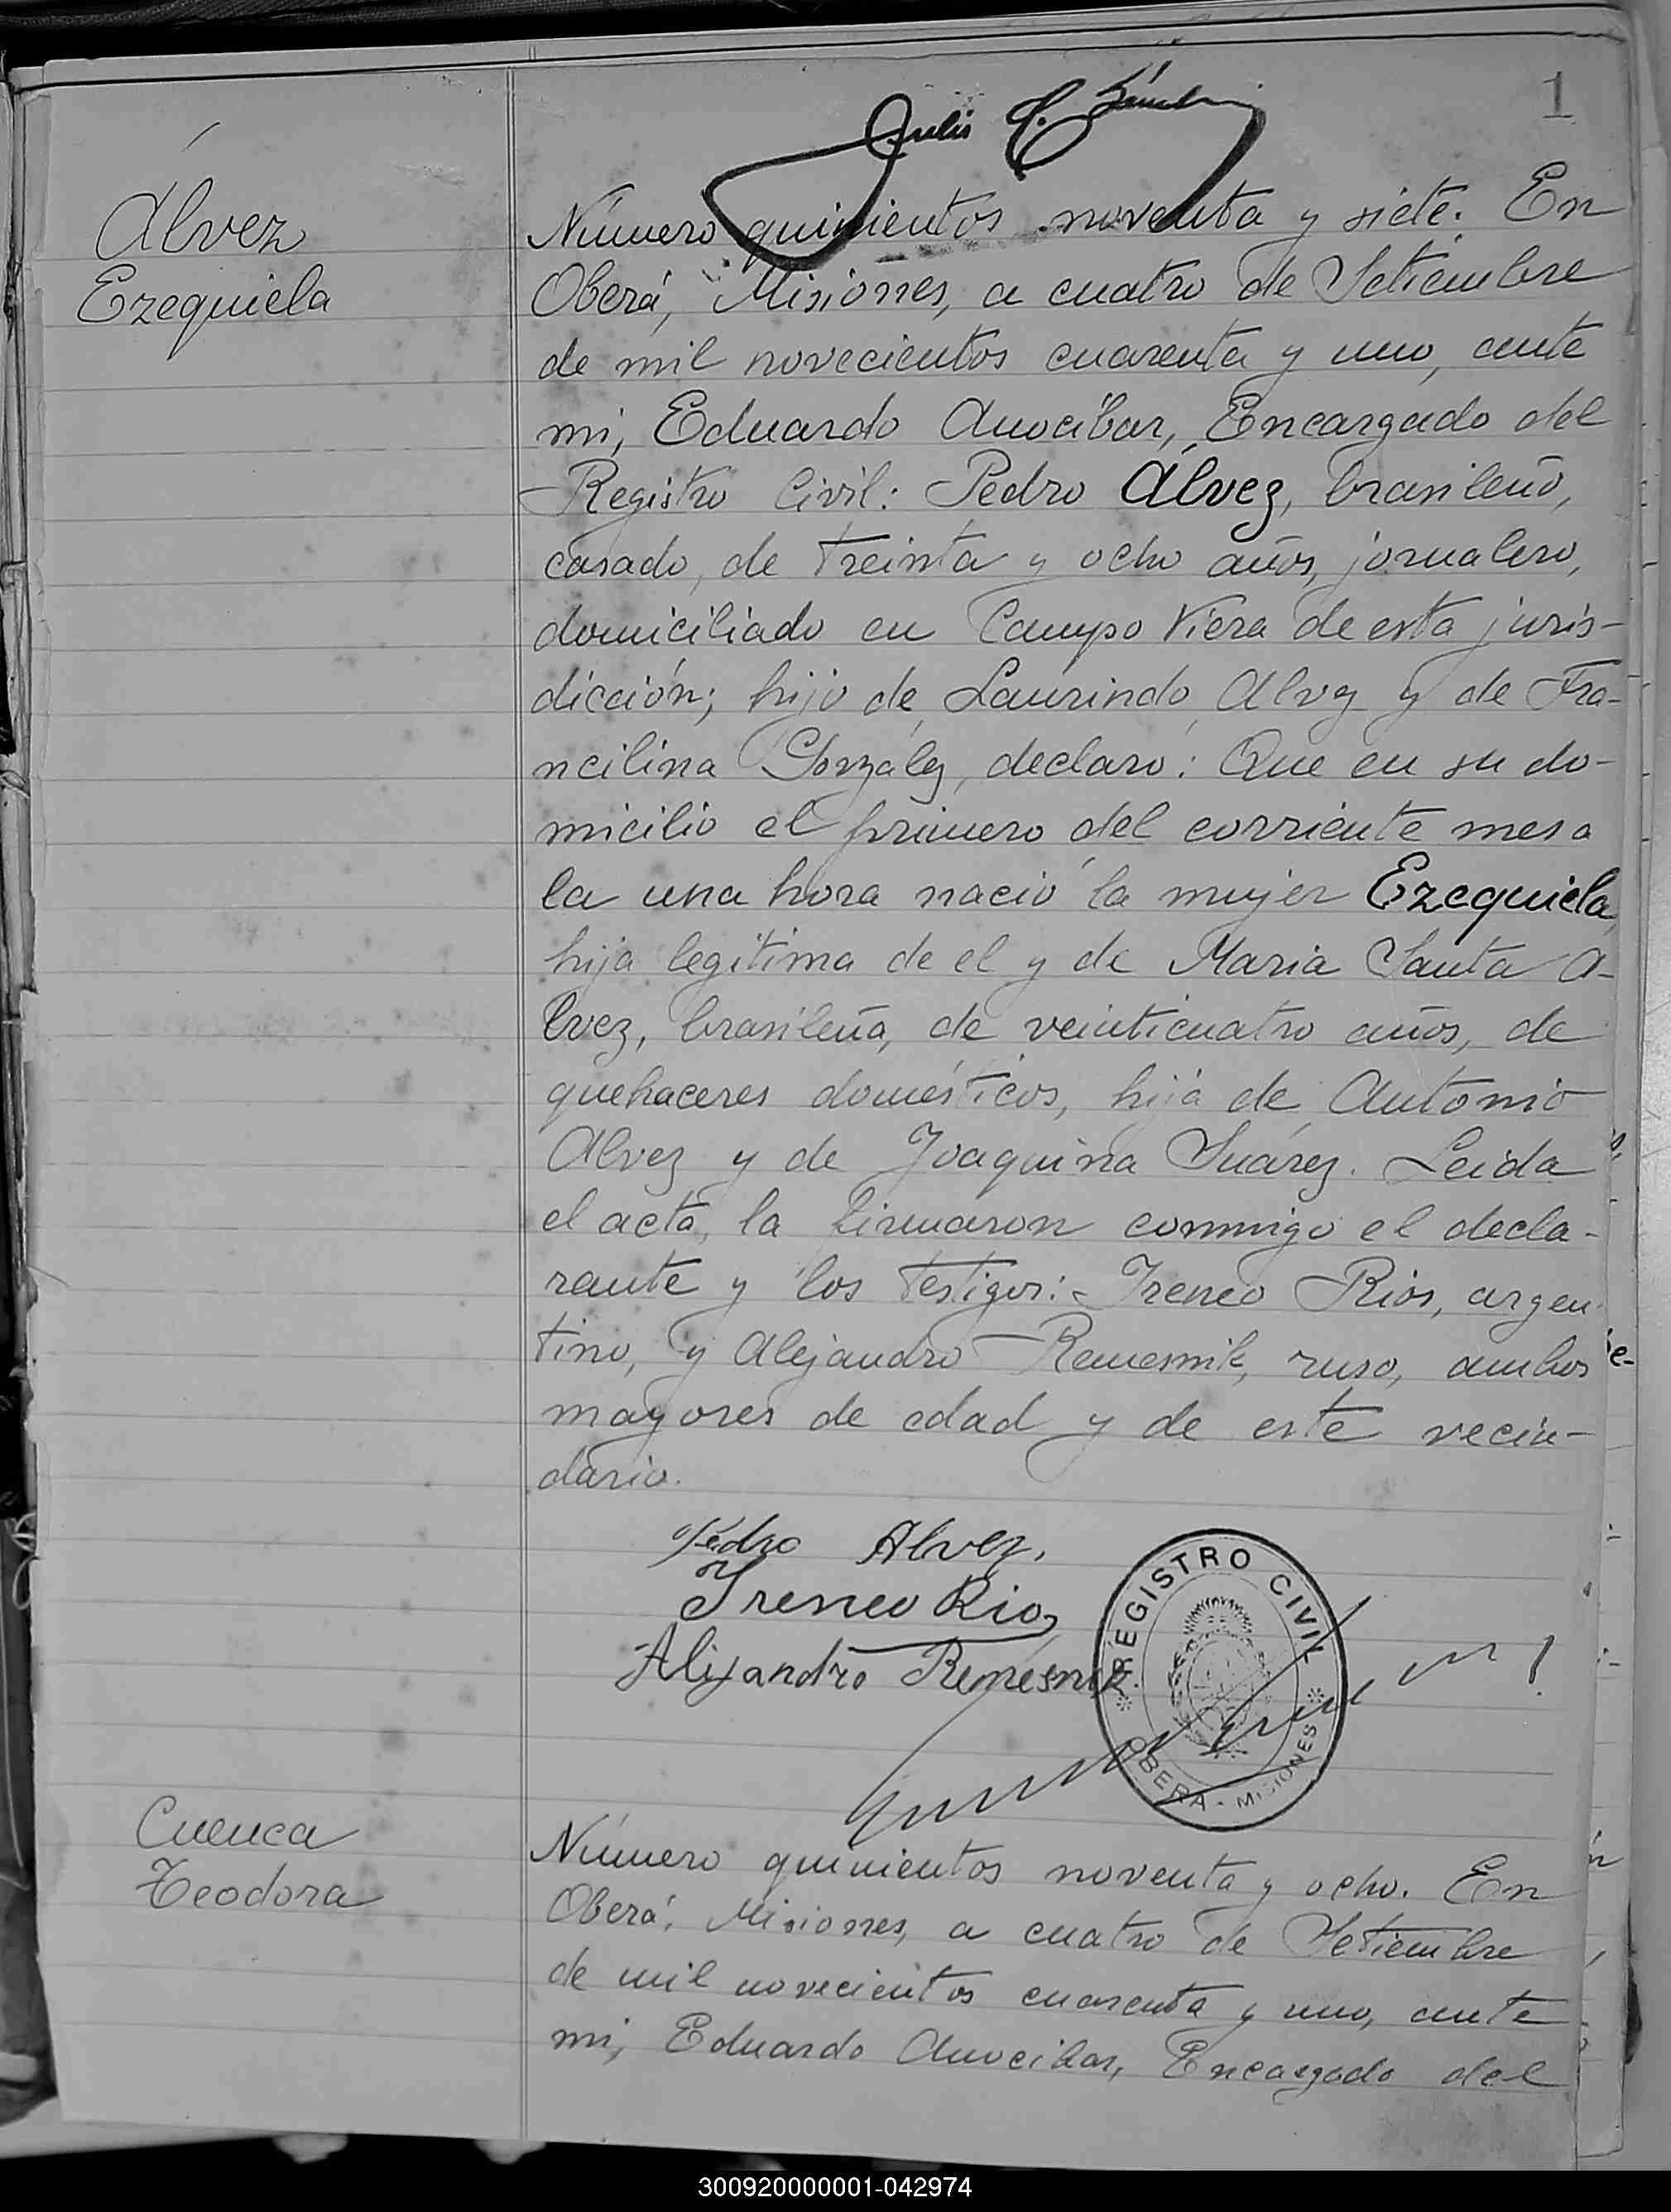 1
Julio
Álvez
Ezequiela
Número quinientos noventa y siete. En
Oberá, Misiones, a cuatro de Setiembre
de mil novecientos cuarenta y uno, ante
mi, Eduardo Anocibar, Encargado del
Registro Civil: Pedro Álvez, brasileño,
casado, de treinta y ocho años, jornalero,
domiciliado en Campo Viera de esta juris-
dicción; hijo de Laurindo Alvez y de Fra-
ncilina González, declaró: Que en su do-
micilio el primero del corriente mes a
la una hora nació la mujer Ezequiela,
hija legítima de el y de Maria Santa A-
lvez, brasileña, de veinticuatro años, de
quehaceres domésticos, hija de Antonio
Alvez y de Joaquina Suárez. Leida
el acta, la firmaron conmigo el decla-
rante y los testigos:- Ireneo Rios, argen-
tino, y Alejandro Remesnik, ruso, ambos
mayores de edad y de este vecin-
dario.
Pedro Alvez.
Ireneo Rios
Alijandro Remesnik
REGISTRO CIVIL
OBERA - MISIONES
Cuenca
Teodora
Número quinientos noventa y ocho. En
Oberá, Misiones, a cuatro de Setiembre
de mil novecientos cuarenta y uno, ante
mi, Eduardo Anocibar, Encargado del
300920000001-042974